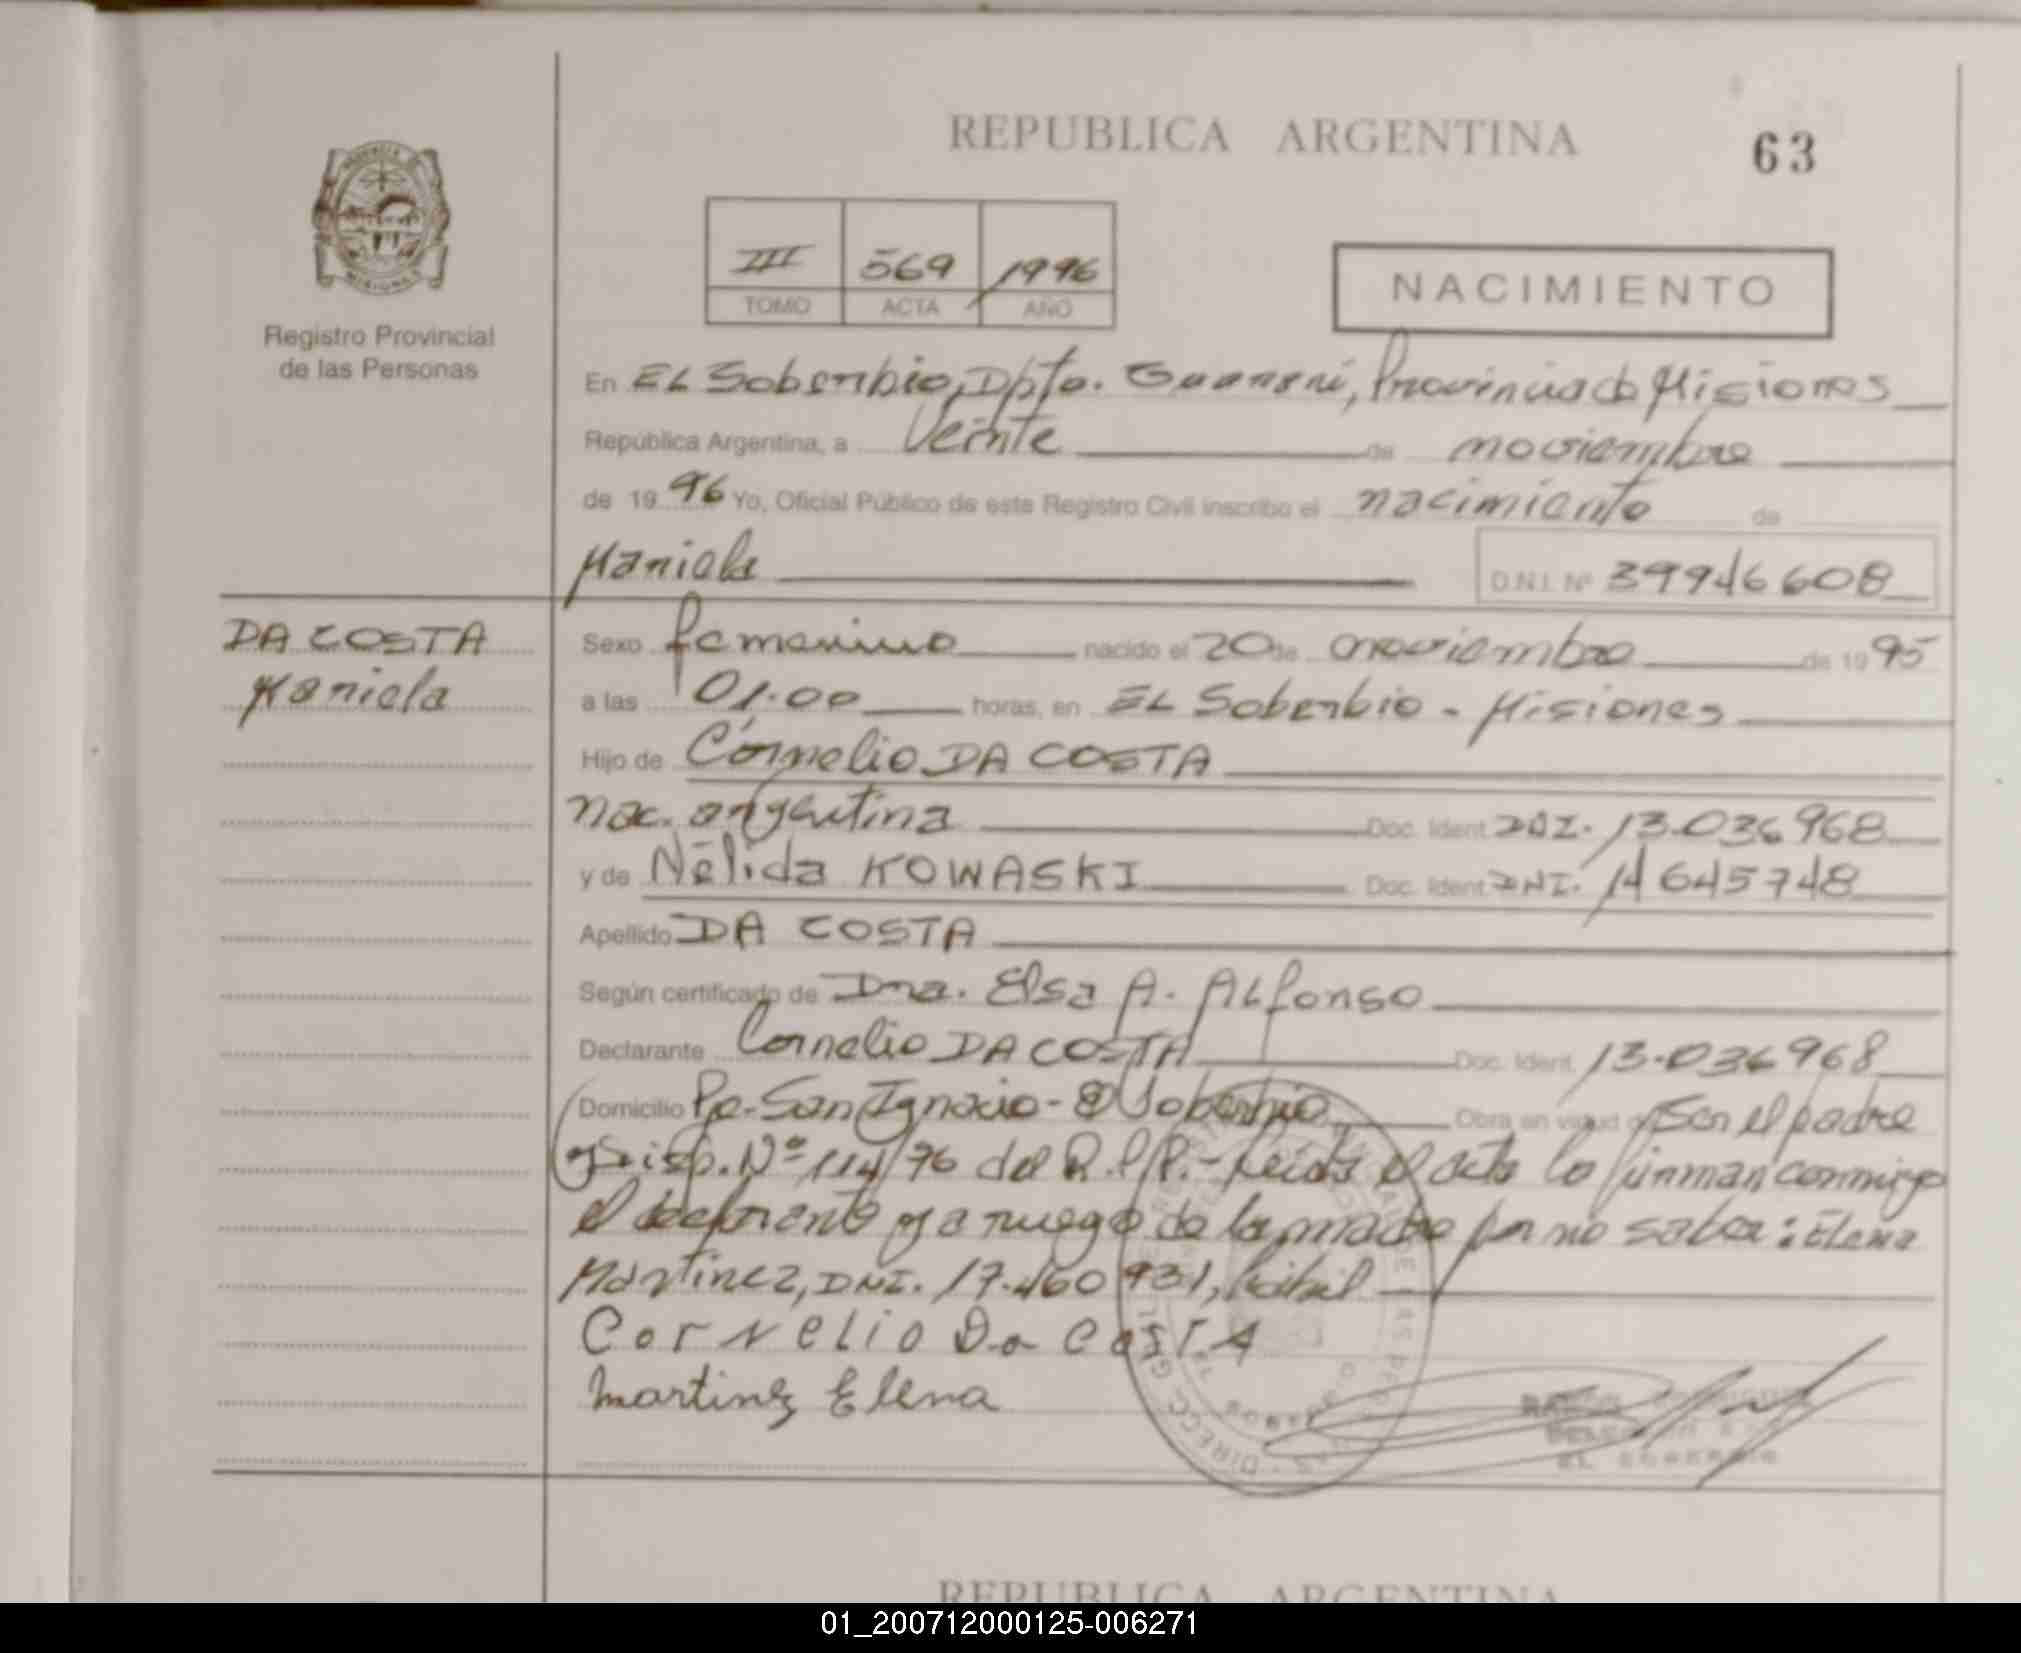 REPUBLICA ARGENTINA
63
III 569 1996
TOMO ACTA AÑO
NACIMIENTO
Registro Provincial
de las Personas
En EL Soberbio, Dpto. Guarani, Provincia de Misiones
República Argentina, a Veinte de noviembre
de 1996 Yo, Oficial Público de este Registro Civil inscribo el nacimiento de
Mariela
D.N.I. Nº 39946608
DA COSTA
Mariela
Sexo femenino nacido el 20 de noviembre de 1995
a las 01.00 horas, en EL Soberbio - Misiones
Hijo de Cornelio DA COSTA
nac. argentina Doc. Ident. DNI. 13.036968
y de Nélida KOWASKI Doc. Ident. DNI. 14645748
Apellido DA COSTA
Según certificado de Dra. Elsa A. ALfonso
Declarante Cornelio DA COSTA Doc. Ident. 13.036968
Domicilio Pje. San Ignacio - El Soberbio Obra en virtud de Ser el padre
y Disp. Nº 114/76 del R.P.P. - Leida el acta la firman conmigo
el declarante y a ruego de la madre por no saber: Elena
Martinez, DNI. 17.460931, habil
Cornelio Da CosTA
Martinez Elena
EL SOBERBIO
REPUBLICA ARGENTINA
01_200712000125-006271